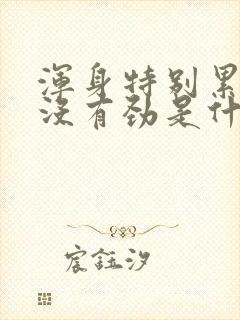 渾身特别累
没有劲是什
宸鈺汐